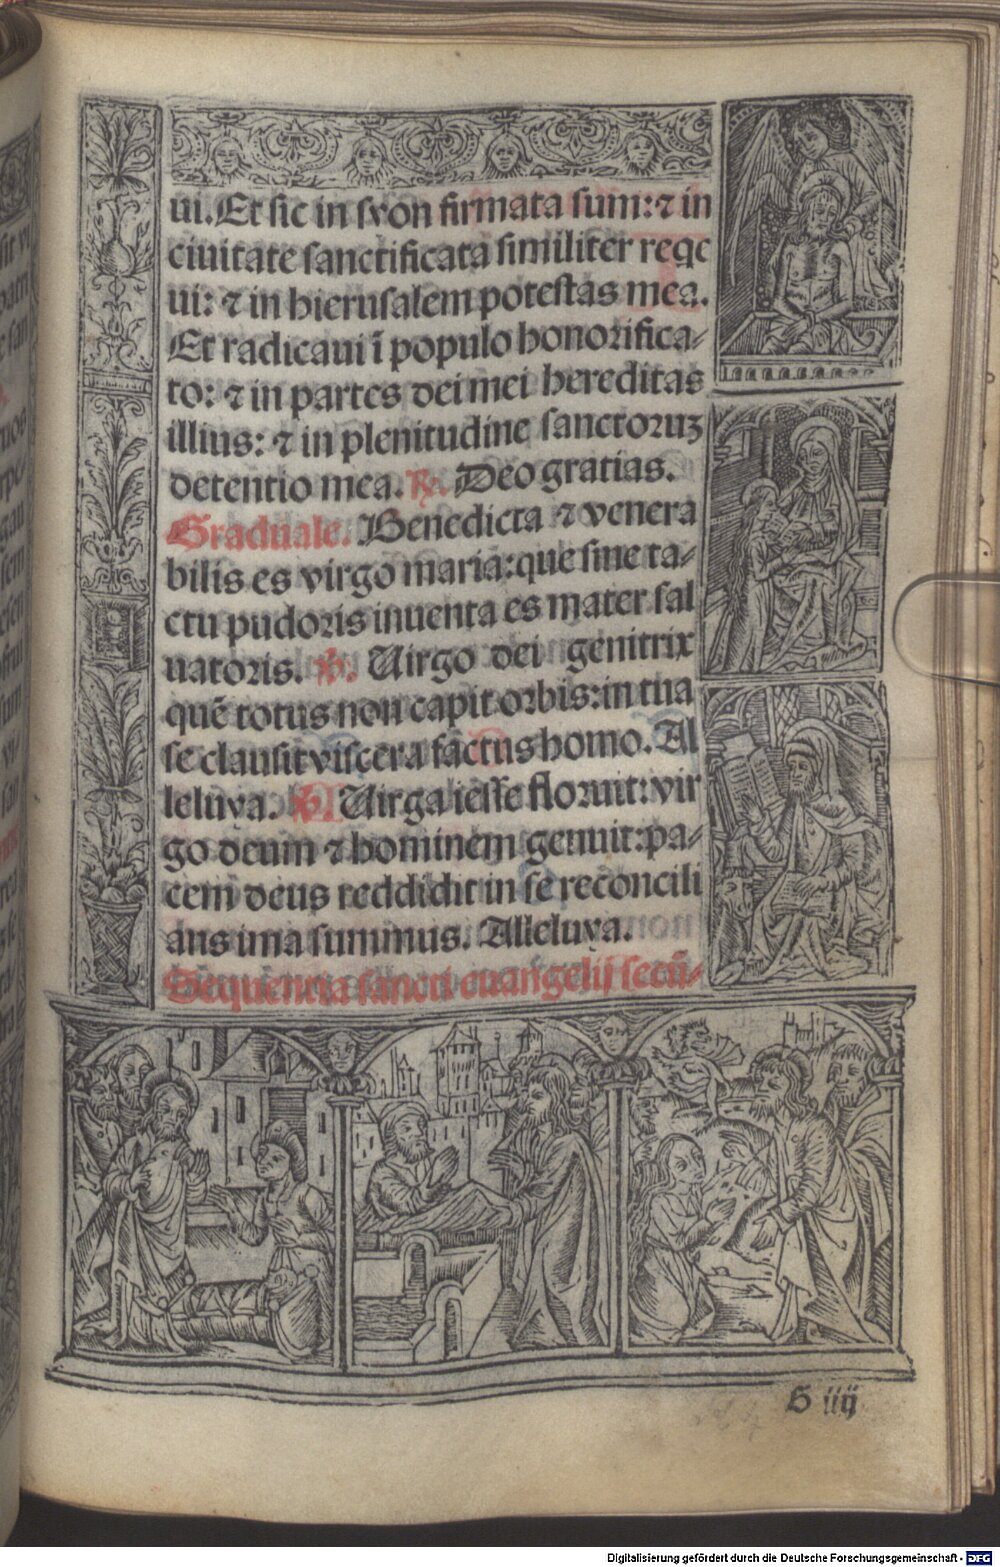 ui. Et sic in syon firmata sum: ⁊ in
ciuitate sanctificata similiter reqe
ui: ⁊ in hierusalem potestas mea.
Et radicaui ĩ populo honorifica-
to: ⁊ in partes dei mei hereditas
illius: ⁊ in plenitudine sanctoruꝫ
detentio mea. ℟. Deo gratias.
Graduale. Benedicta ⁊ venera
bilis es virgo maria: que sine ta-
ctu pudoris inuenta es mater sal
uatoris. ℣. Uirgo dei genitrix
quē totus non capit orbis: in tua
se clausit viscera factus homo. Al
leluya. ℣. Uirga iesse floruit: vir
go deum ⁊ hominem genuit: pa-
cem deus reddidit in se reconcili
ans ima summis. Alleluya.
Sequentia sancti euangelij secū-
S iiij
Digitalisierung gefördert durch die Deutsche Forschungsgemeinschaft - DFG